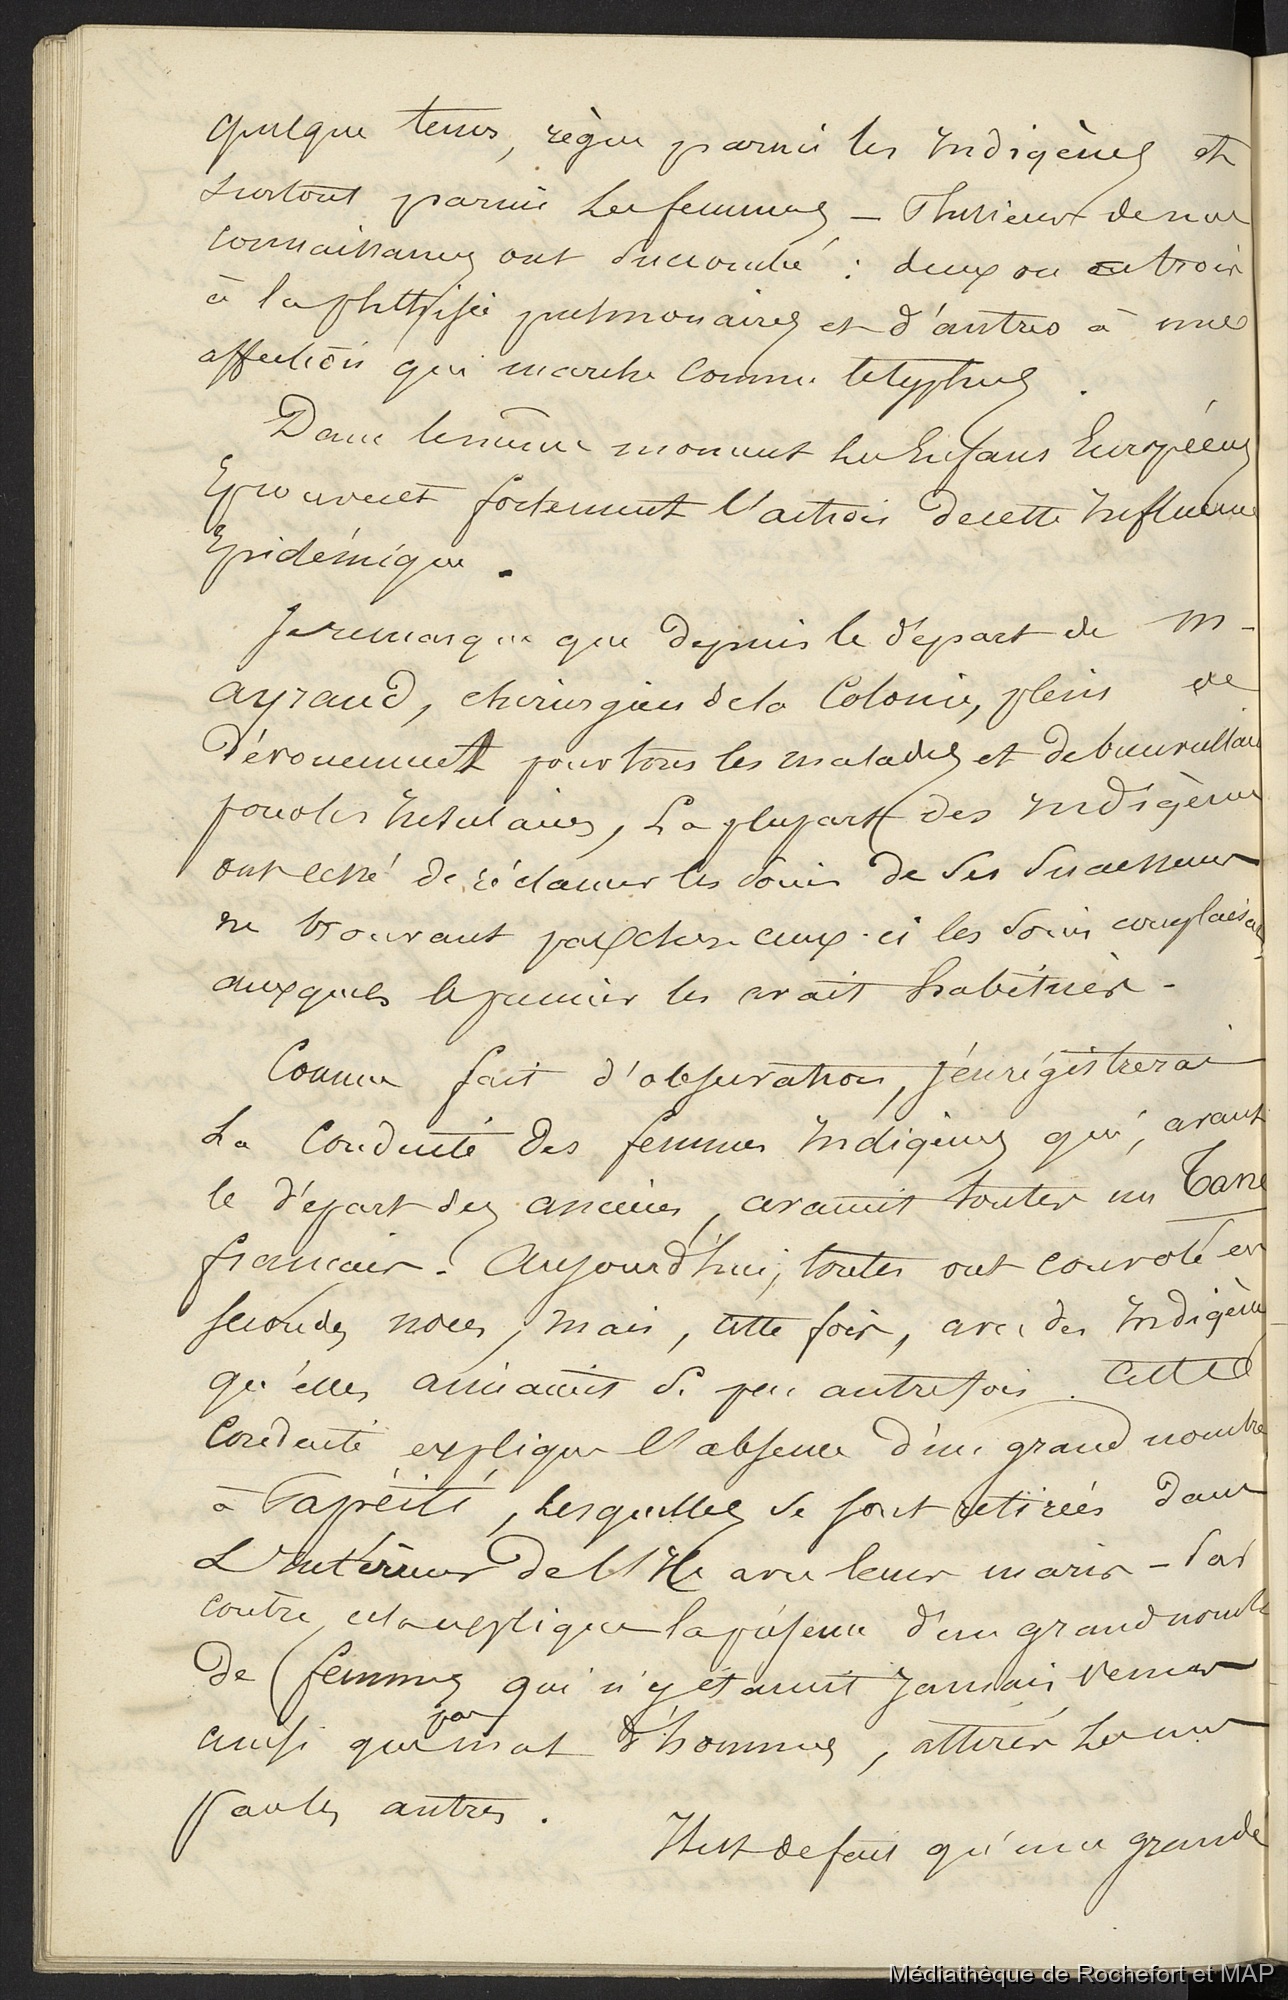 quelque tems, règne parmi les Indigènes et
surtout parmi les femmes – Plusieurs de nos
connaissances ont succombé : deux ou trois
à la phthisie pulmonaire et d'autres à une
affection qui marche comme le typhus.
Dans le même moment les Enfans Européens
Eprouvent fortement l'action de cette Influence
Epidémique.
Je remarque que depuis le départ de M.
ayraud, chirurgien de la Colonie, plein de
dévouement pour tous les malades et de bienveillance
pour les Insulaires, La plupart des Indigènes
ont cessé de réclamer les soins de ses Successeurs
ne trouvant pas chez ceux-ci les soins complaisans
auxquels le premier les avait habitués -
Comme fait d'observation, j'enrégistrerai
La Conduite des femmes Indigènes qui, avant
le départ des anciens, avaient toutes un Tane
francais. Aujourd'hui, toutes ont convolé en
secondes noces, mais, cette fois, avec des Indigènes
qu'elles aimaient si peu autrefois. Cette
Conduite explique l'absence d'un grand nombre
à Papéiti, lesquelles se sont retirées dans
L'intérieur de l'Ile avec leurs maris – Par
contre, cela explique la présence d'un grand nombre
de femmes qui n'y étaient Jamais venues
ainsi que pas mal d'hommes, attirés les uns
par les autres.
Il est de fait qu'une grande
Médiathèque de Rochefort et MAP